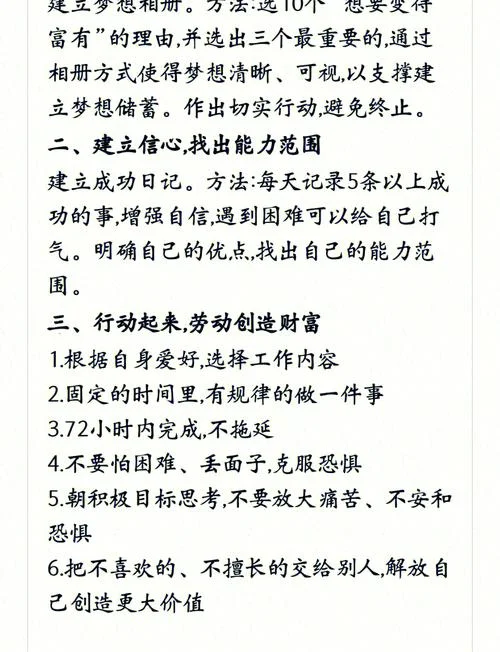 建立梦想相册。方法:选10个“想要变得
富有”的理由,并选出三个最重要的,通过
相册方式使得梦想清晰、可视,以支撑建
立梦想储蓄。作出切实行动,避免终止。
二、建立信心,找出能力范围
建立成功日记。方法:每天记录5条以上成
功的事,增强自信,遇到困难可以给自己打
气。明确自己的优点,找出自己的能力范
围。
三、行动起来,劳动创造财富
1.根据自身爱好,选择工作内容
2.固定的时间里,有规律的做一件事
3.72小时内完成,不拖延
4.不要怕困难、丢面子,克服恐惧
5.朝积极目标思考,不要放大痛苦、不安和
恐惧
6.把不喜欢的、不擅长的交给别人,解放自
己创造更大价值